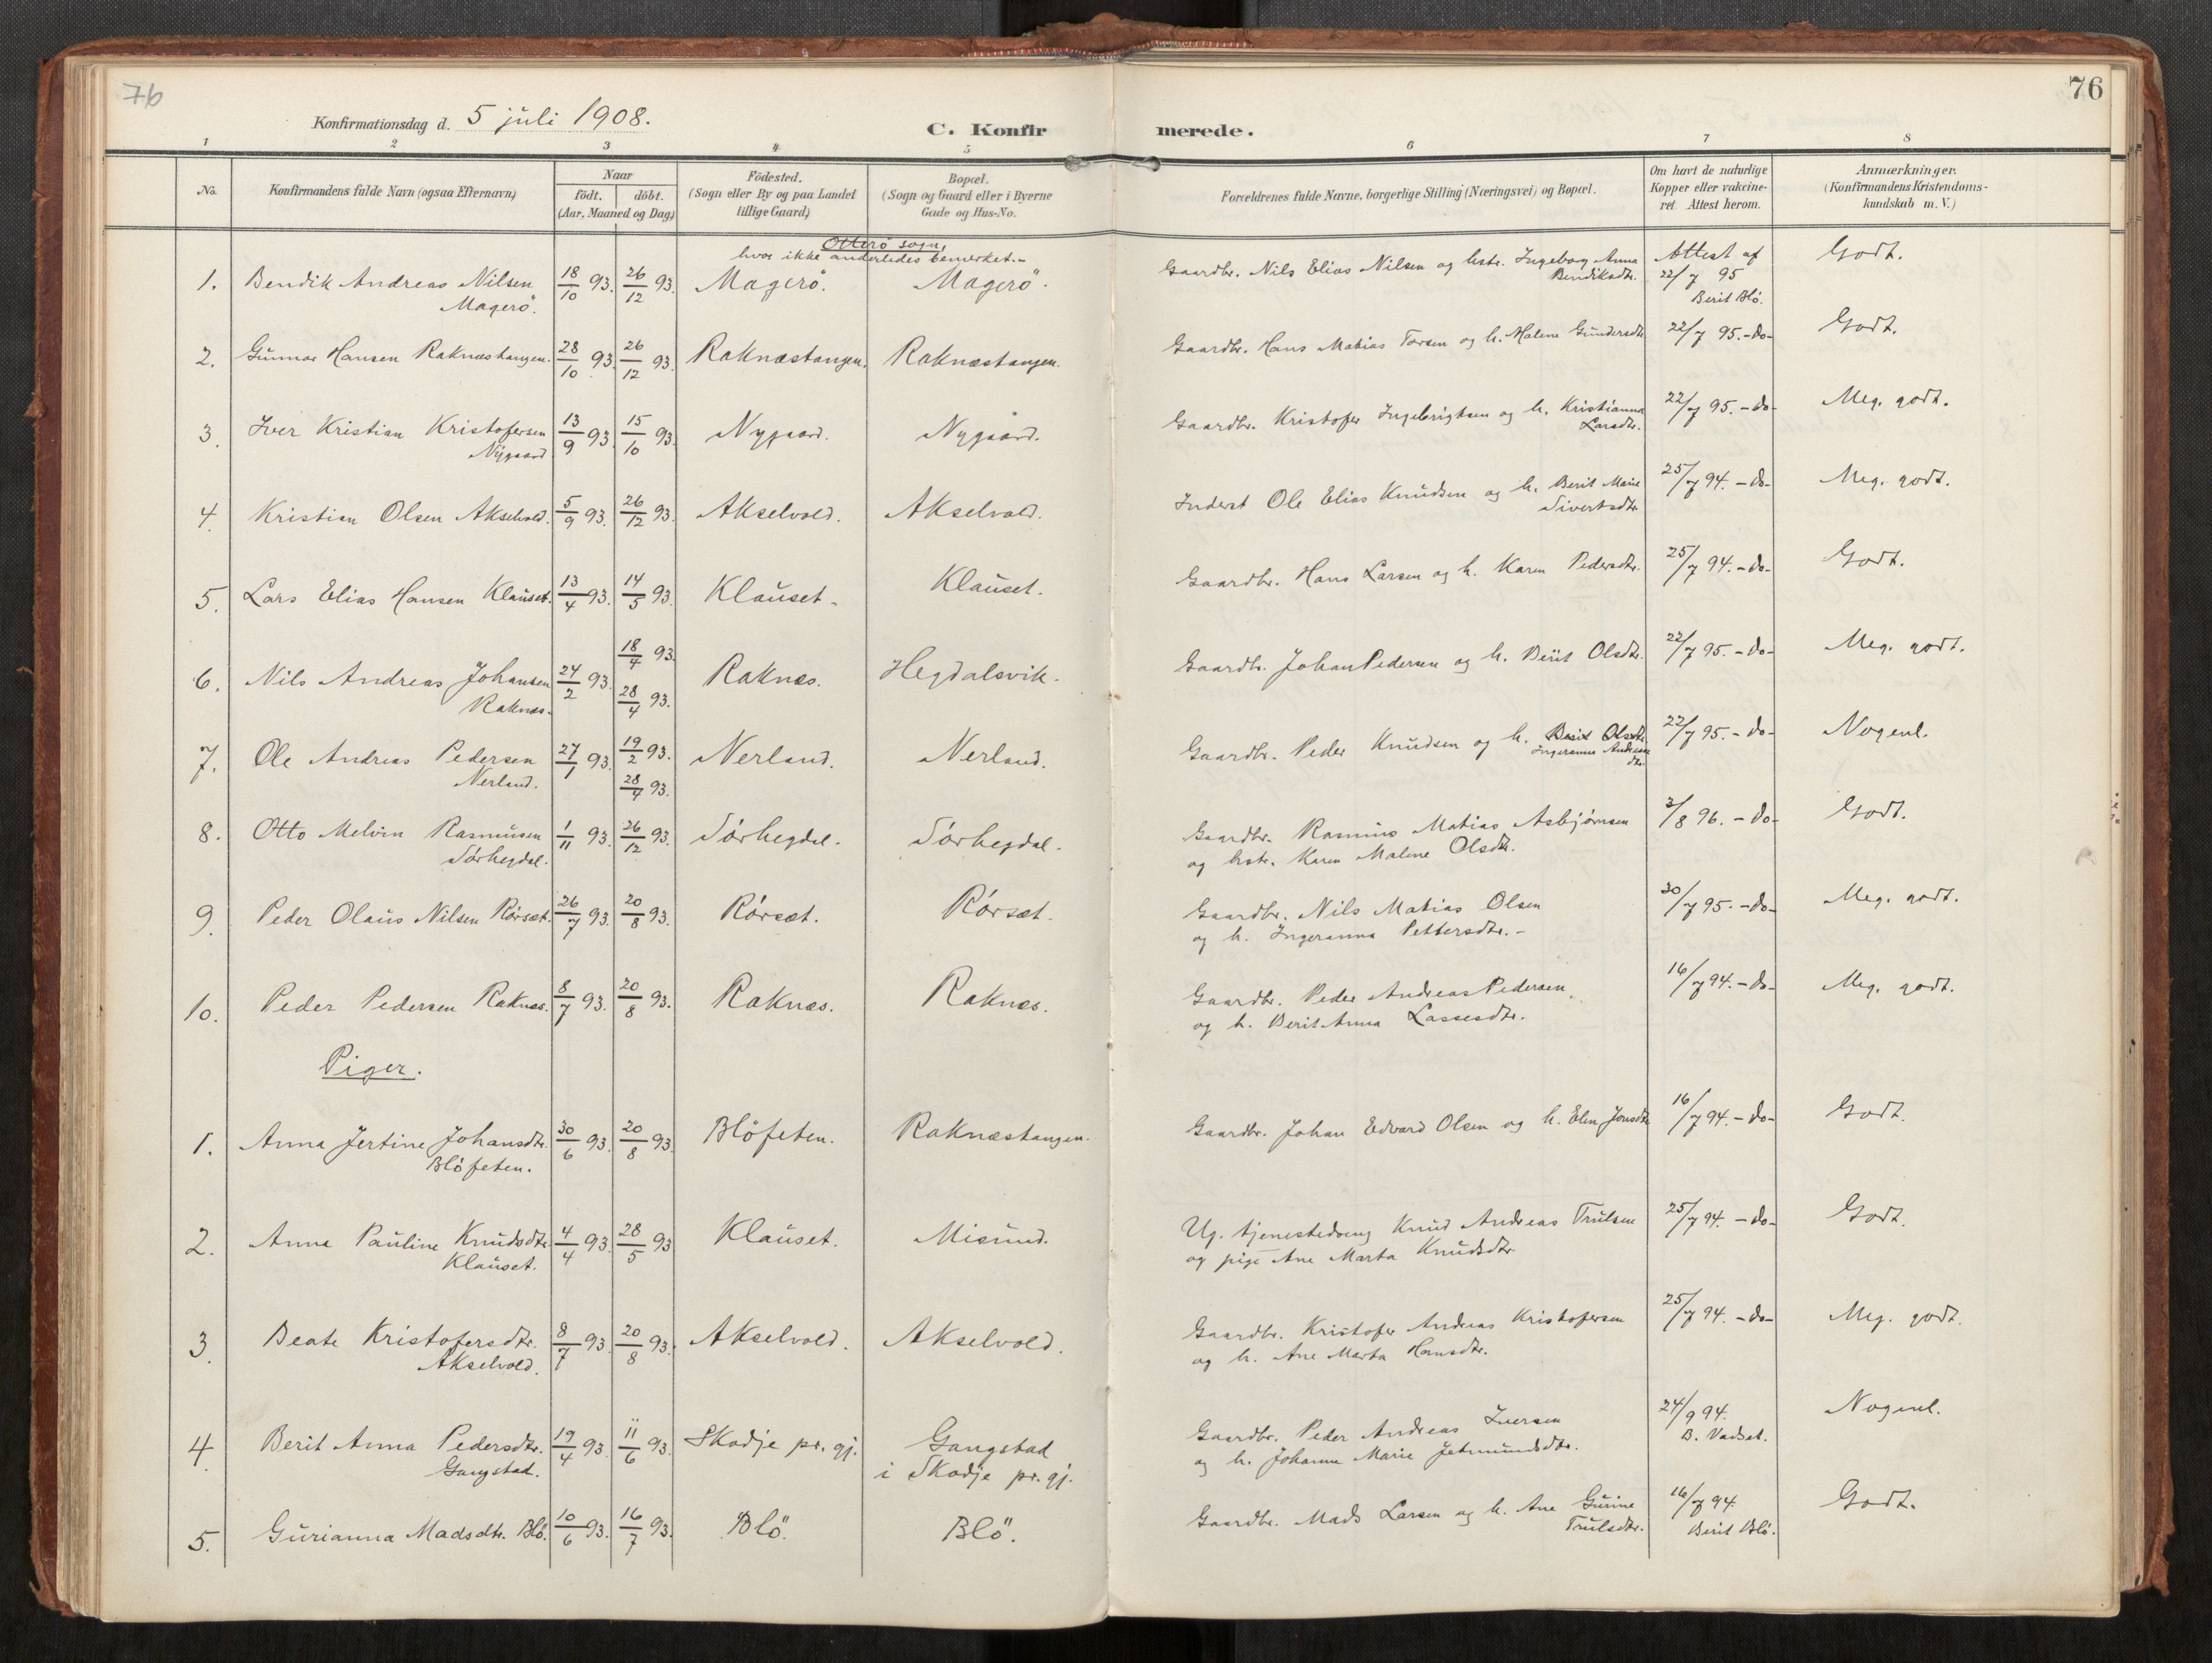 76
76
Konfirmationsdag d. 5 juli 1908.
C. Konfir
merede.
1 2 3 4 5 6 7 8
No.
Konfirmandens fulde Navn (ogsaa Efternavn)
Naar
födt. döbt.
(Aar, Maaned og Dag)
Födested.
(Sogn eller By og paa Landet
tillige Gaard)
Bopæl.
(Sogn og Gaard eller i Byerne
Gade og Hus-No.
Forældrenes fulde Navne, borgerlige Stilling (Næringsvei) og Bopæl.
Om havt de naturlige
Kopper eller vakcine-
ret. Attest herom.
Anmærkninger.
(Konfirmandens Kristendoms-
kundskab m. V.)
Otterö sogn,
hvor ikke anderledes bemerket.-
1. Bendik Andreas Nilsen 18/10 93. 26/12 93. Magerö. Magerö. Gaardbr. Nils Elias Nilsen og hstr. Ingeborg Anna Attest af Godt.
Magerö. Bendiksdtr. 22/7 95
Berit Blö.
2. Gunnar Hansen Raknæstangen. 28/10 93. 26/12 93. Raknæstangen. Raknæstangen. Gaardbr. Hans Matias Torsen og h. Malene Gundersdtr. 22/7 95.-do- Godt.
3. Iver Kristian Kristofersen 13/9 93. 15/10 93. Nygaard. Nygaard. Gaardbr. Kristofer Ingebrigtsen og h. Kristianna 22/7 95.-do- Meg. godt.
Nygaard Larsdtr.
4. Kristian Olsen Akselvold. 5/9 93. 26/12 93. Akselvold. Akselvold. Inderst Ole Elias Knudsen og h. Berit Marie 25/7 94.-do- Meg. godt.
Sivertsdtr.
5. Lars Elias Hansen Klauset. 13/4 93. 14/5 93. Klauset. Klauset. Gaardbr. Hans Larsen og h. Karen Pedersdtr. 25/7 94.-do- Godt.
6. Nils Andreas Johansen 24/2 93. 18/4 93. Raknæs. Hegdalsvik. Gaardbr. Johan Pedersen og h. Berit Olsdtr. 22/7 95.-do- Meg. godt.
Raknæs. 28/4 93.
7. Ole Andreas Pedersen 27/1 93. 19/2 93. Nerland. Nerland. Gaardbr. Peder Knudsen og h. Berit Olsdtr. 22/7 95.-do- Nogenl.
Nerland. 28/4 93. Ingeranna Andreas
dtr.
8. Otto Melvin Rasmusen 1/11 93. 26/12 93. Sörhegdal. Sörhegdal. Gaardbr. Rasmus Matias Asbjørnsen 3/8 96.-do- Godt.
Sörhegdal. og hstr. Karen Malene Olsdtr.
9. Peder Olaus Nilsen Rörsæt. 26/7 93. 20/8 93. Rörsæt. Rörsæt. Gaardbr. Nils Matias Olsen 30/7 95.-do- Meg. godt.
og h. Ingeranna Pettersdtr.-
10. Peder Pedersen Raknæs. 8/7 93. 20/8 93. Raknæs. Raknæs. Gaardbr. Peder Andreas Pedersen 16/7 94.-do- Meg. godt.
og h. Berit Anna Lassesdtr.
Piger.
1. Anna Jertine Johansdtr. 30/6 93. 20/8 93. Blöfeten. Raknæstangen. Gaardbr. Johan Edvard Olsen og h. Elen Jonsdtr. 16/7 94.-do- Godt.
Blöfeten.
2. Anna Pauline Knudsdtr. 4/4 93. 28/5 93 Klauset. Misund. Ug. tjenestedreng Knud Andreas Trulsen 25/7 94.-do- Godt.
Klauset. og pige Ane Marta Knudsdtr.
3. Beate Kristofersdtr. 8/7 93. 20/8 93. Akselvold. Akselvold. Gaardbr. Kristofer Andreas Kristofersen 25/7 94.-do- Meg. godt.
Akselvold. og h. Ane Marta Hansdtr.
4. Berit Anna Pedersdtr. 19/4 93. 11/6 93. Skodje pr. gj. Gangstad Gaardbr. Peder Andreas Iversen 24/9 94. Nogenl.
Gangstad. i Skodje pr. gj. og h. Johanne Marie Jetmundsdtr. B. Vadset.
5. Gurianna Madsdtr. Blö. 10/6 93. 16/7 93. Blö. Blö. Gaardbr. Mads Larsen og h. Ane Gurine 16/7 94. Godt.
Trulsdtr. Berit Blö.